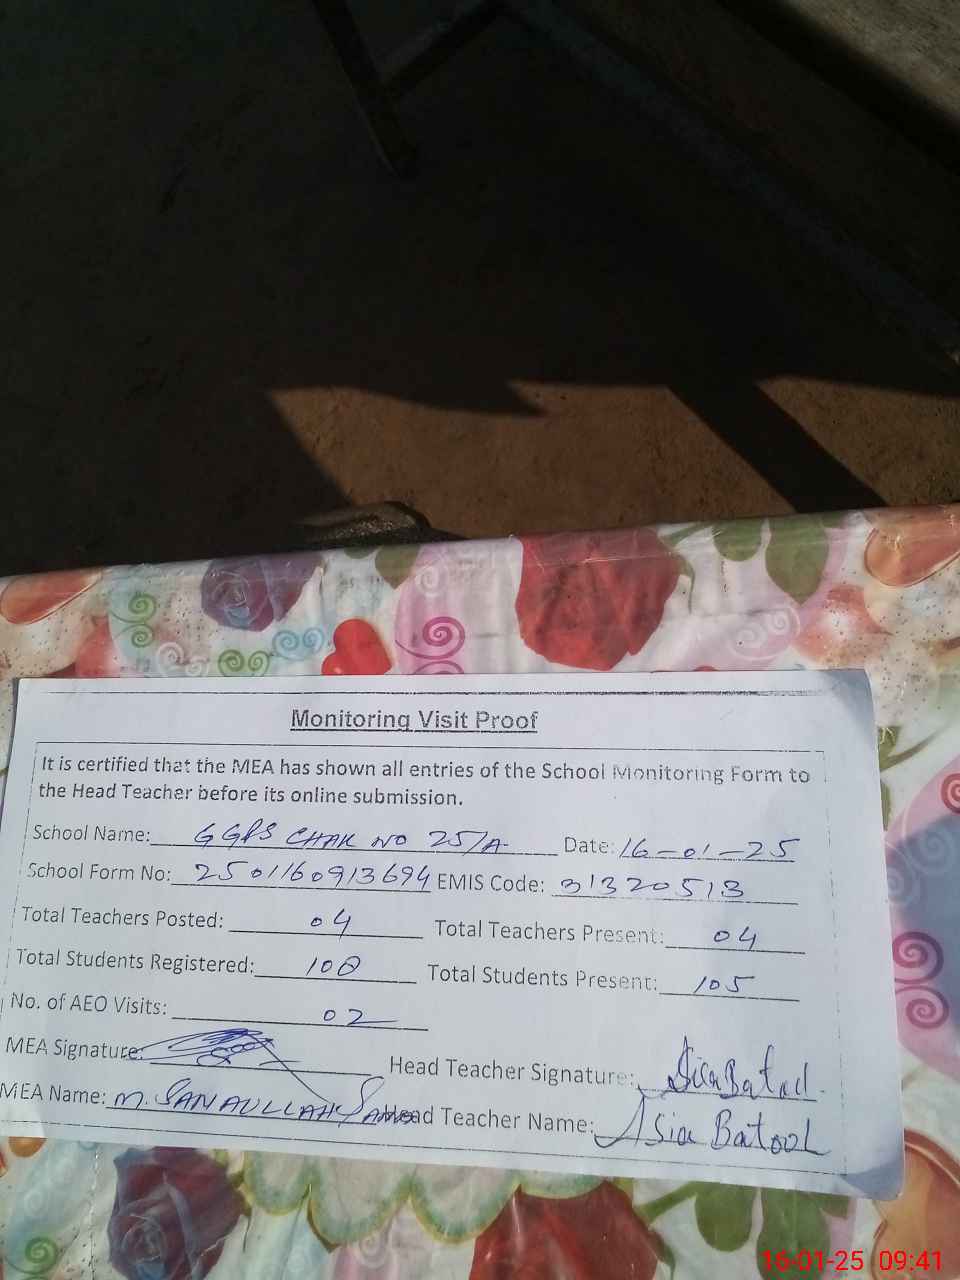 Monitoring Visit Proof
It is certified that the MEA has shown all entries of the School Monitoring Form to
the Head Teacher before its online submission.
School Name: GGPS CHAK NO 25/A Date: 16-01-25
School Form No: 2501160913694 EMIS Code: 31320513
Total Teachers Posted: 04 Total Teachers Present: 04
Total Students Registered: 108 Total Students Present: 105
No. of AEO Visits: 02
MEA Signature: Head Teacher Signature: Asia Batool
MEA Name: M. SANAULLAH Head Teacher Name: Asia Batool
16-01-25 09:41